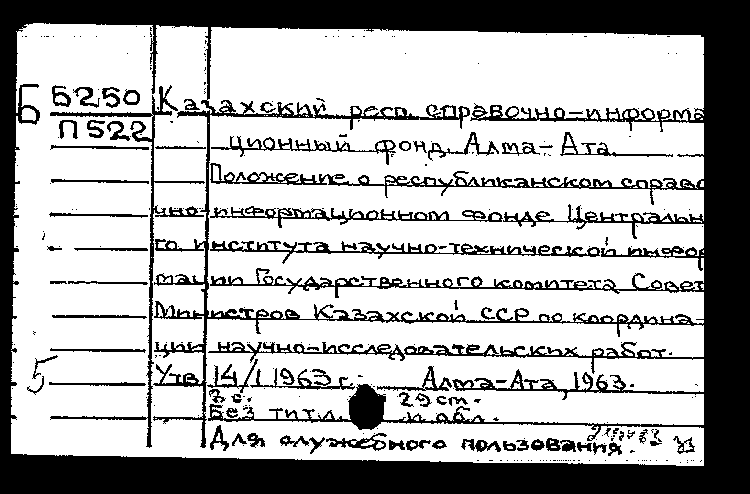 Б Б5250 Казахский респ. справочно-информа
П522 ционный фонд. Алма-Ата.
Положение о республиканском справо
чно-информационном фонде Центральн
го института научно-технической инфор
мации Государственного комитета Совет
Министров Казахской ССР по координа-
ции научно-исследовательских работ.
5 Утв. 14/I 1963 г. Алма-Ата, 1963.
3 с. 29 см.
Без тит.л. и обл.
Для служебного пользования.